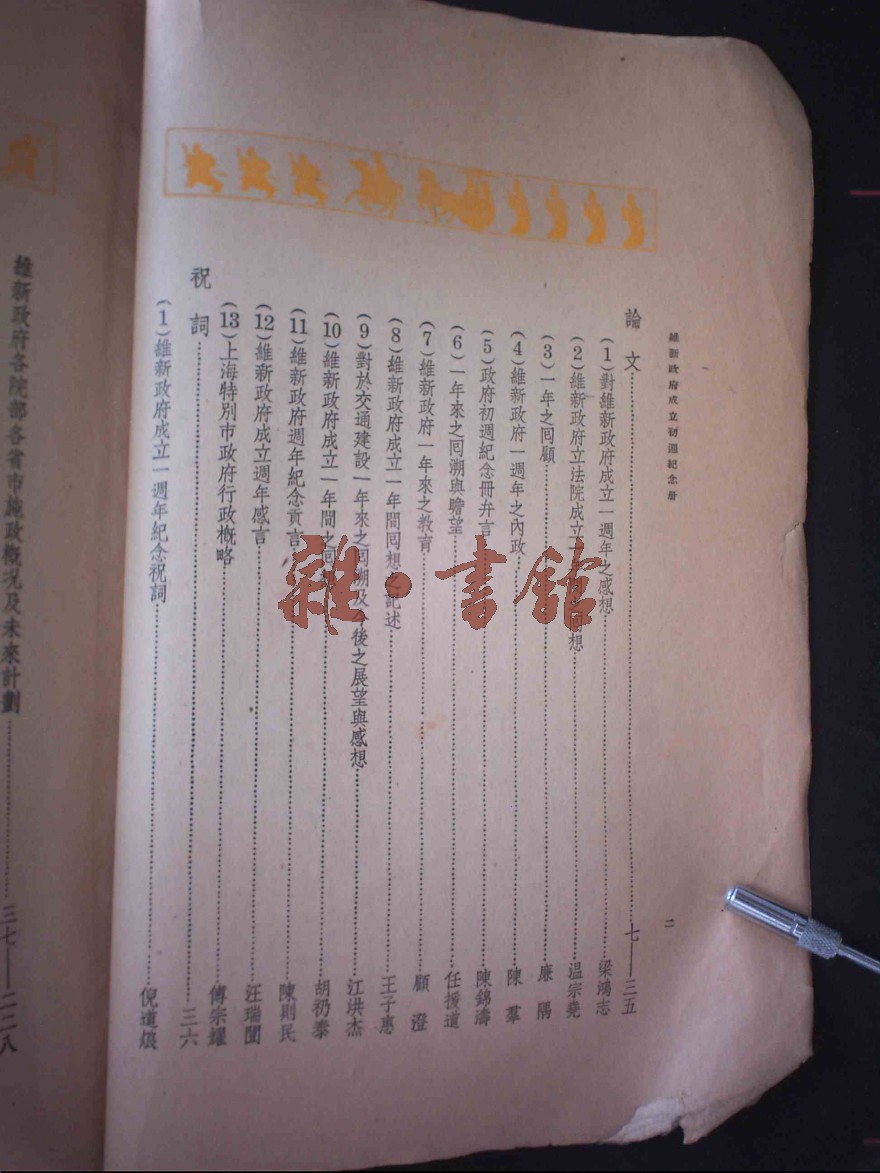 維新政府成立初週紀念册
二
論文……七——三五
(1)對維新政府成立一週年之感想……梁鴻志
(2)維新政府立法院成立一 間之回想……温宗堯
(3)一年之囘顧……廉隅
(4)維新政府一週年之內政……陳羣
(5)政府初週紀念冊弁言……陳錦濤
(6)一年來之囘溯與瞻望……任援道
(7)維新政府一年來之教育……顧澄
(8)維新政府成立一年間囘想之記述……王子惠
(9)對於交通建設一年來之囘溯及今後之展望與感想……江洪杰
(10)維新政府成立一年間之囘……胡礽泰
(11)維新政府週年紀念貢言……陳則民
(12)維新政府成立週年感言……汪瑞闓
(13)上海特別市政府行政槪略……傅宗耀
祝詞……三六
(1)維新政府成立一週年紀念祝詞……倪道烺
維新政府各院部各省市施政槪況及未來計劃……三七——二二八
雜·書館